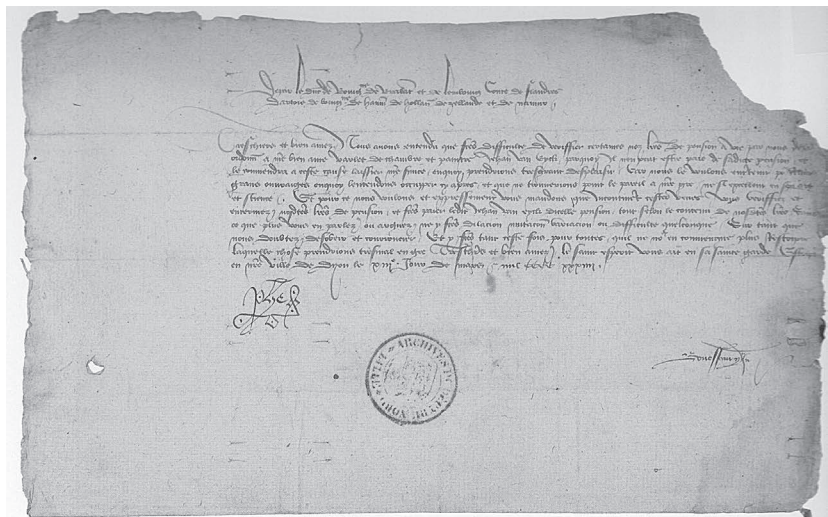 De par le duc de bourgne de brabant et de lembourg Conte de flandres
Dartois de bourgne de haynn de hollan de zellande et de namur
Treschiers et bien amez Nous avons entendu que fetes difficulte de verifier certaines noz lres de pension a vie par nous
a nre bien ame varlet de chambre et paintre Jehan van Eyck parquoy Il ne peut estre paie de sadicte pension et
le conviendra a ceste cause laissier nre service enquoy prendrions tresgrant desplaisir Car nous le voulons entretenir
grans ouvraiges enquoy lentendons occuper cy apres et que ne trouverions point le pareil a nre gre ne si excellent en
et science Et pour ce nous voulons et expressement vous mandons que Incontinent cestes veues vous verifiez et
enterinez nosdictes lres de pension et fetes paier ledit Jehan van eyck dicelle pension tout selon le contenu de nosdictes lres
ce que plus vous en parlez ou arguez ne y fetes dilacion mutacion variacion ou difficulte quelconque Sur tant que
nous doubtez desobeir et courroucer Et y fetes tant ceste fois pour toutes quil ne nous en conviengne plus
laquelle chose prendrions tresmal en gre Treschiers et bien amez le saint esperit vous ait en sa sainte garde
en nre ville de Dijon le XIIe Jour de mars mil CCCC XXXIIII
ARCHIVES DU
NORD